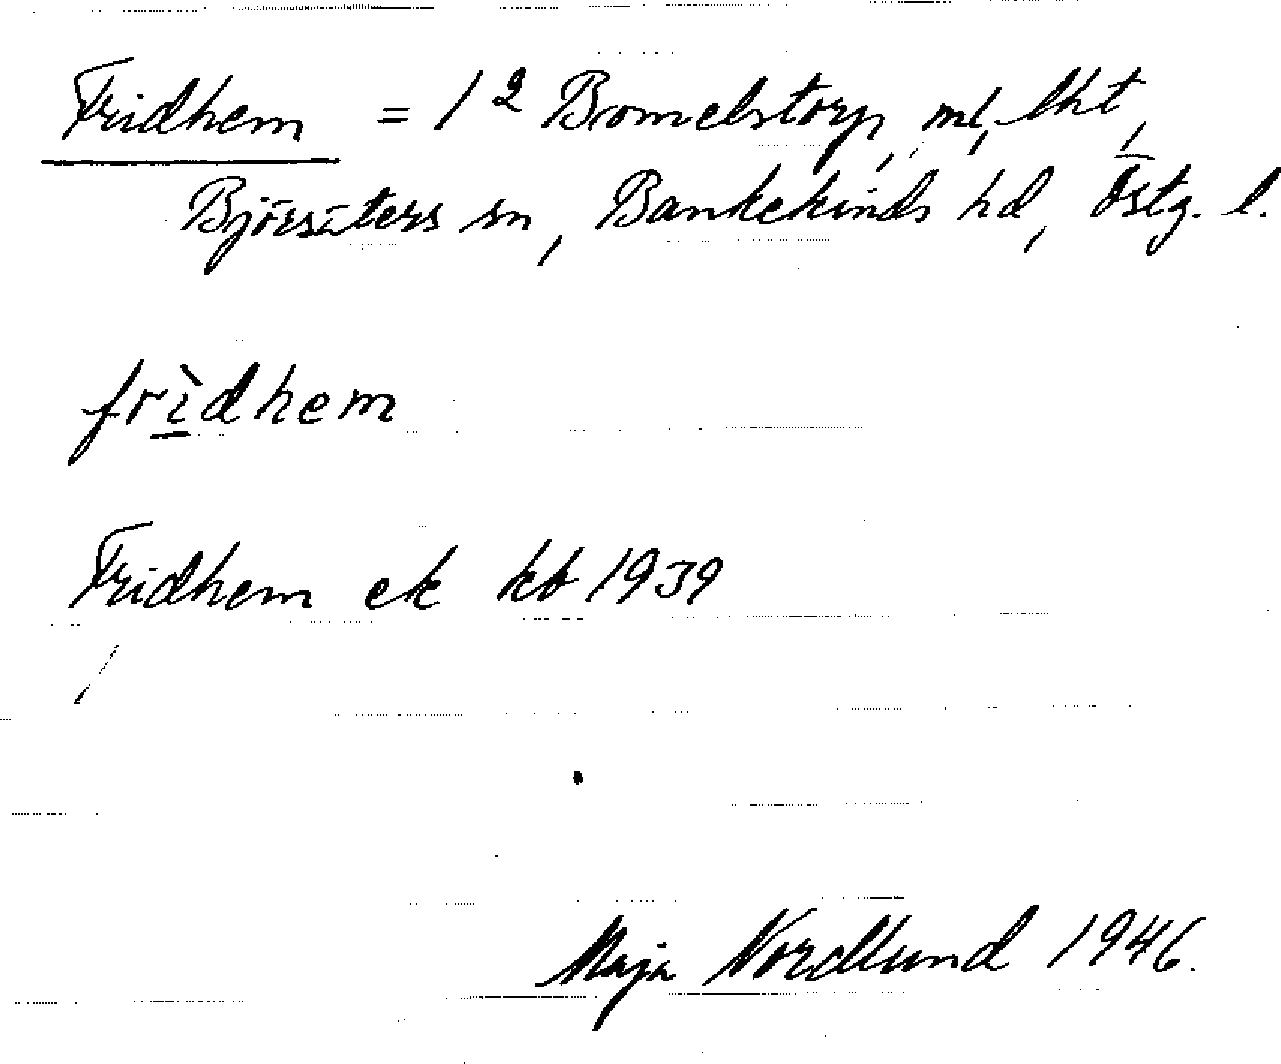 Fridhem = 1² Bromelstorp, ml, lht,
Björsäters sn, Bankekinds hd, Östg. l.
frìdhem
Fridhem ek kb 1939
/
Maja Nordlund 1946.